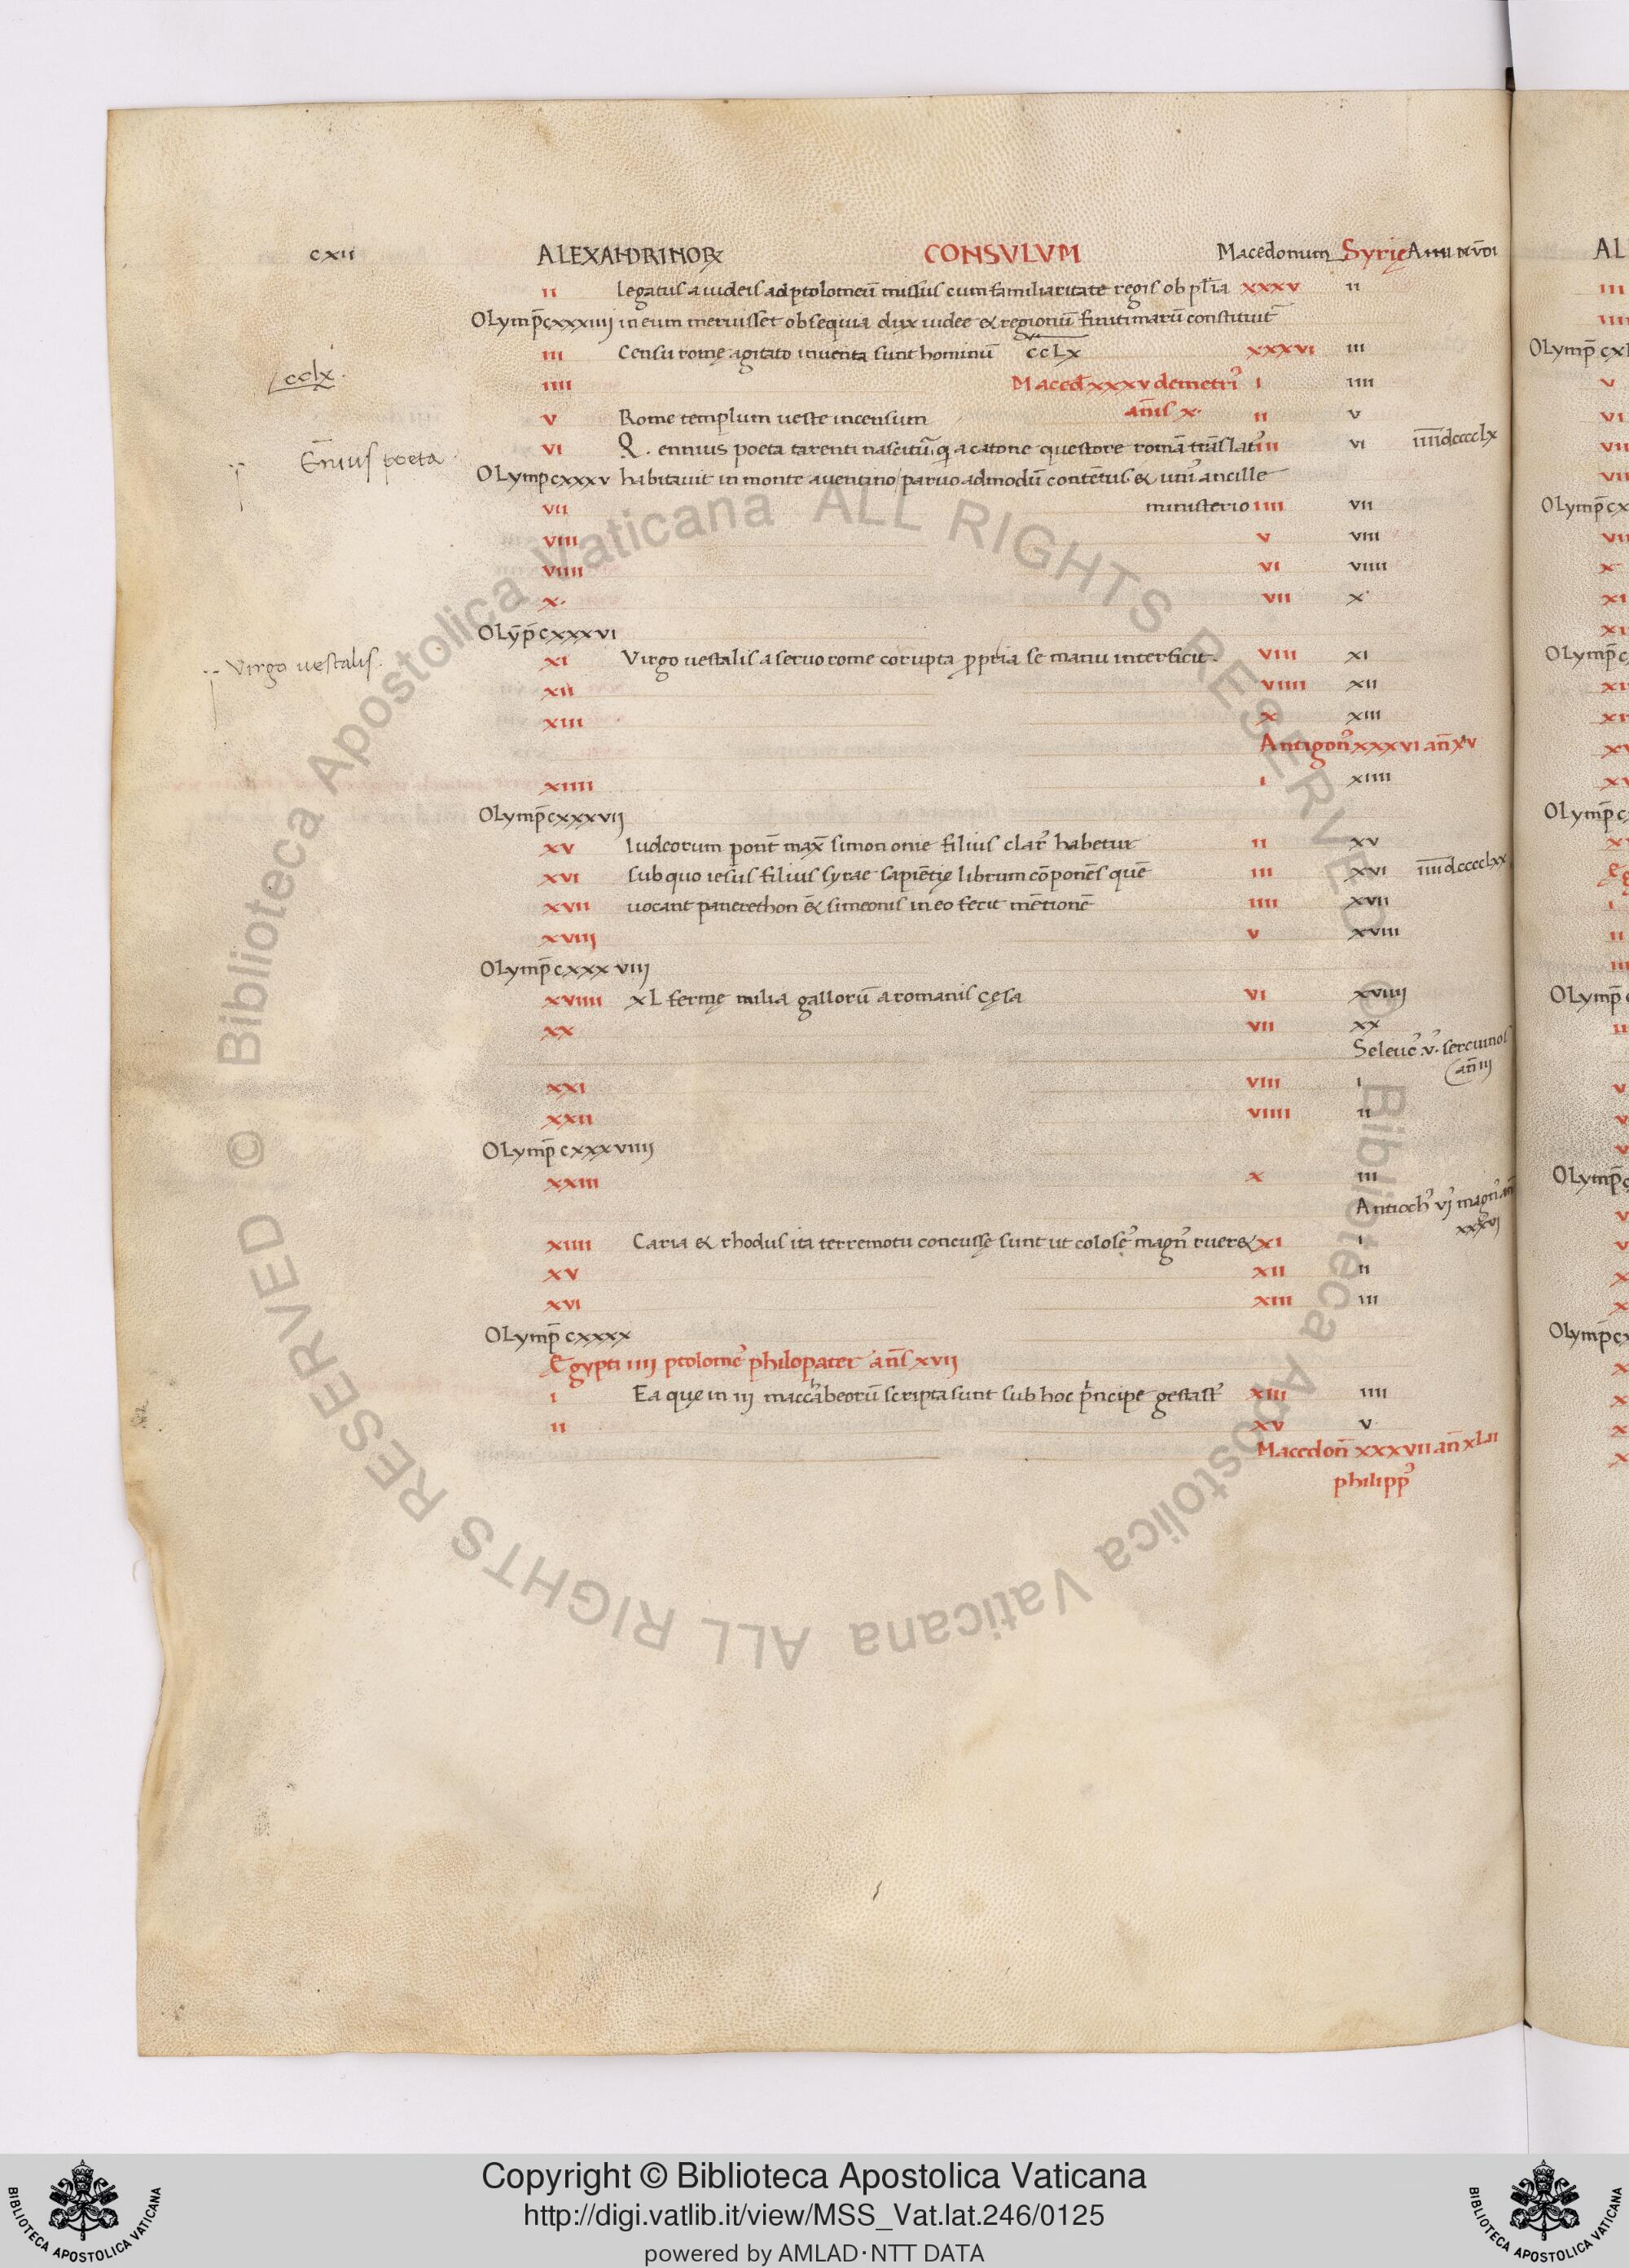 cxii ALEXANDRINOR̄ CONSVLVM Macedonum Syrię Anni mūdi
ii legatus a iudeis ad ptolomeū missus cum familiaritate regis ob pl̄ia xxxv ii
OLymp̄ cxxxiiii in eum meruisset obsequia dux iudee & regionū finitimarū constituit
iii Censu romę agitato inuenta sunt hominū ccLx xxxvi iii
cclx.
iiii Maced̄ xxxv demetri᾽ i iiii
an̄is x.
v Rome templum ueste incensum ii v
Ēnius poeta
vi Q. ennius poeta tarenti nascitur̄ q a catone questore romā trās lat᾽ iii vi iiiidccccLx
OLymp cxxxv habitauit in monte auentino / paruo admodū contētus & uni᾽ ancille
vii ministerio iiii vii
viii v viii
viiii vi viiii
x. vii x
OLȳp̄ cxxxvi
Virgo uestalis.
xi Virgo uestalis a seruo rome corupta ppria se manu interficit. viii xi
xii viiii xii
xiii x xiii
Antigon᾽ xxxvi an̄ xv
xiiii i xiiii
OLymp̄ cxxxvii
xv Iudeorum pont̄ max̄ simon onie filius clar᾽ habetur ii xv
xvi sub quo iesus filius syrae sapiētię librum cōponēs quē iii xvi iiiidcccclxx
xvii uocant panerethon & simeonis in eo fecit mētionē iiii xvii
xviii v xviii
OLymp̄ cxxxviii
xviiii xL fermę milia gallorū a romanis cęsa vi xviiii
xx vii xx
Seleuc᾽ .v. sercuinos
an̄ iii
xxi viii i
xxii viiii ii
OLymp̄ cxxxviiii
xxiii x iii
Antioch᾽ vi magn᾽ an̄
xxxvi
xiiii Caria & rhodus ita terremotu concussę sunt ut colose᾽ magn᾽ ruer& xi i
xv xii ii
xvi xiii iii
OLymp̄ cxxxx
Egypti iiii ptolome᾽ philopater an̄s xvii
i Ea quę in iii maccabeorū scripta sunt sub hoc pncipe gesta st᾽ xiii iiii
ii xv v
Macedon̄ xxxvii an̄ xLii
philipp᾽
AL
iii
iiii
OLymp̄ cxl
v
vi
vii
Copyright © Biblioteca Apostolica Vaticana
http://digi.vatlib.it/view/MSS_Vat.lat.246/0125
powered by AMLAD·NTT DATA
BIBLIOTECA APOSTOLICA VATICANA
BIBLIOTECA APOSTOLICA VATICANA
© Biblioteca Apostolica Vaticana ALL RIGHTS RESERVED
© Biblioteca Apostolica Vaticana ALL RIGHTS RESERVED